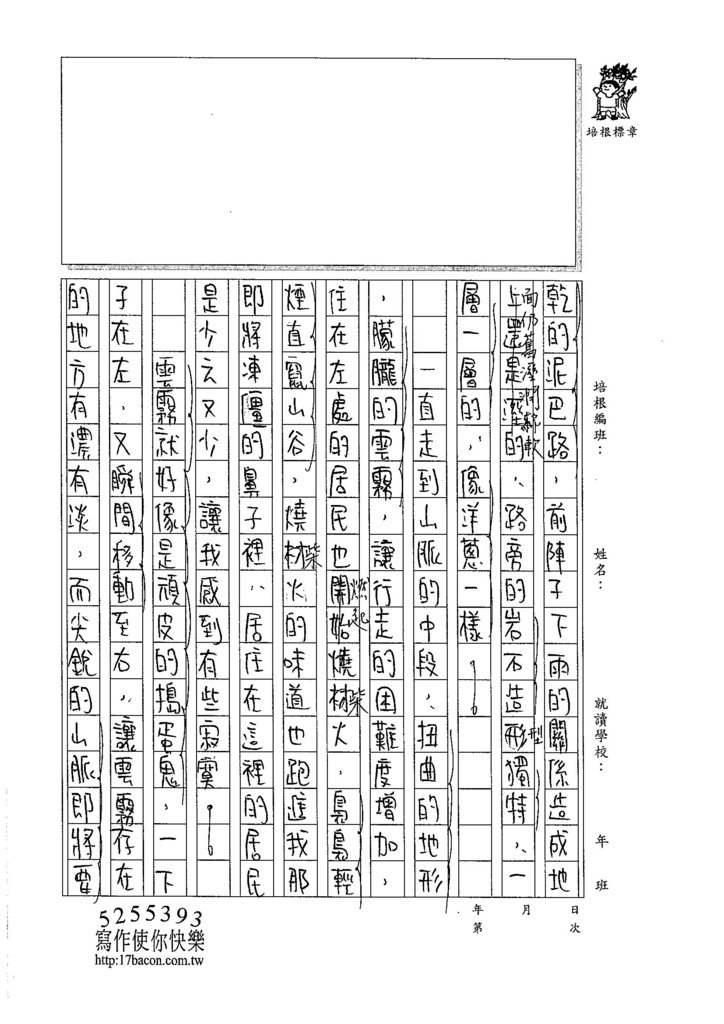 培根標章
培根編班：
姓名：
就讀學校：
年
班
年
月
日
第
次
乾的泥巴路，前陣子下雨的關係造成地
面仍舊溼潤鬆軟
上還是溼的，路旁的岩石造形獨特，一
型
層一層的，像洋蔥的一樣。
一直走到山脈的中段，扭曲的地形
，朦朧的雲霧，讓行走的困難度增加，
住在左處的居民也開始燒材火，鳥鳥輕
燃起
柴
煙直竄山谷，燒材火的味道也跑進我那
柴
即將凍僵的鼻子裡，居住在這裡的居民
是少之又少，讓我感到有些寂寞。
雲霧就好像是頑皮的搗蛋鬼，一下
子在左，又瞬間移動至右，讓雲霧存在
的地方有濃有淡，而尖銳的山脈即將要
5255393
寫作使你快樂
http:17bacon.com.tw